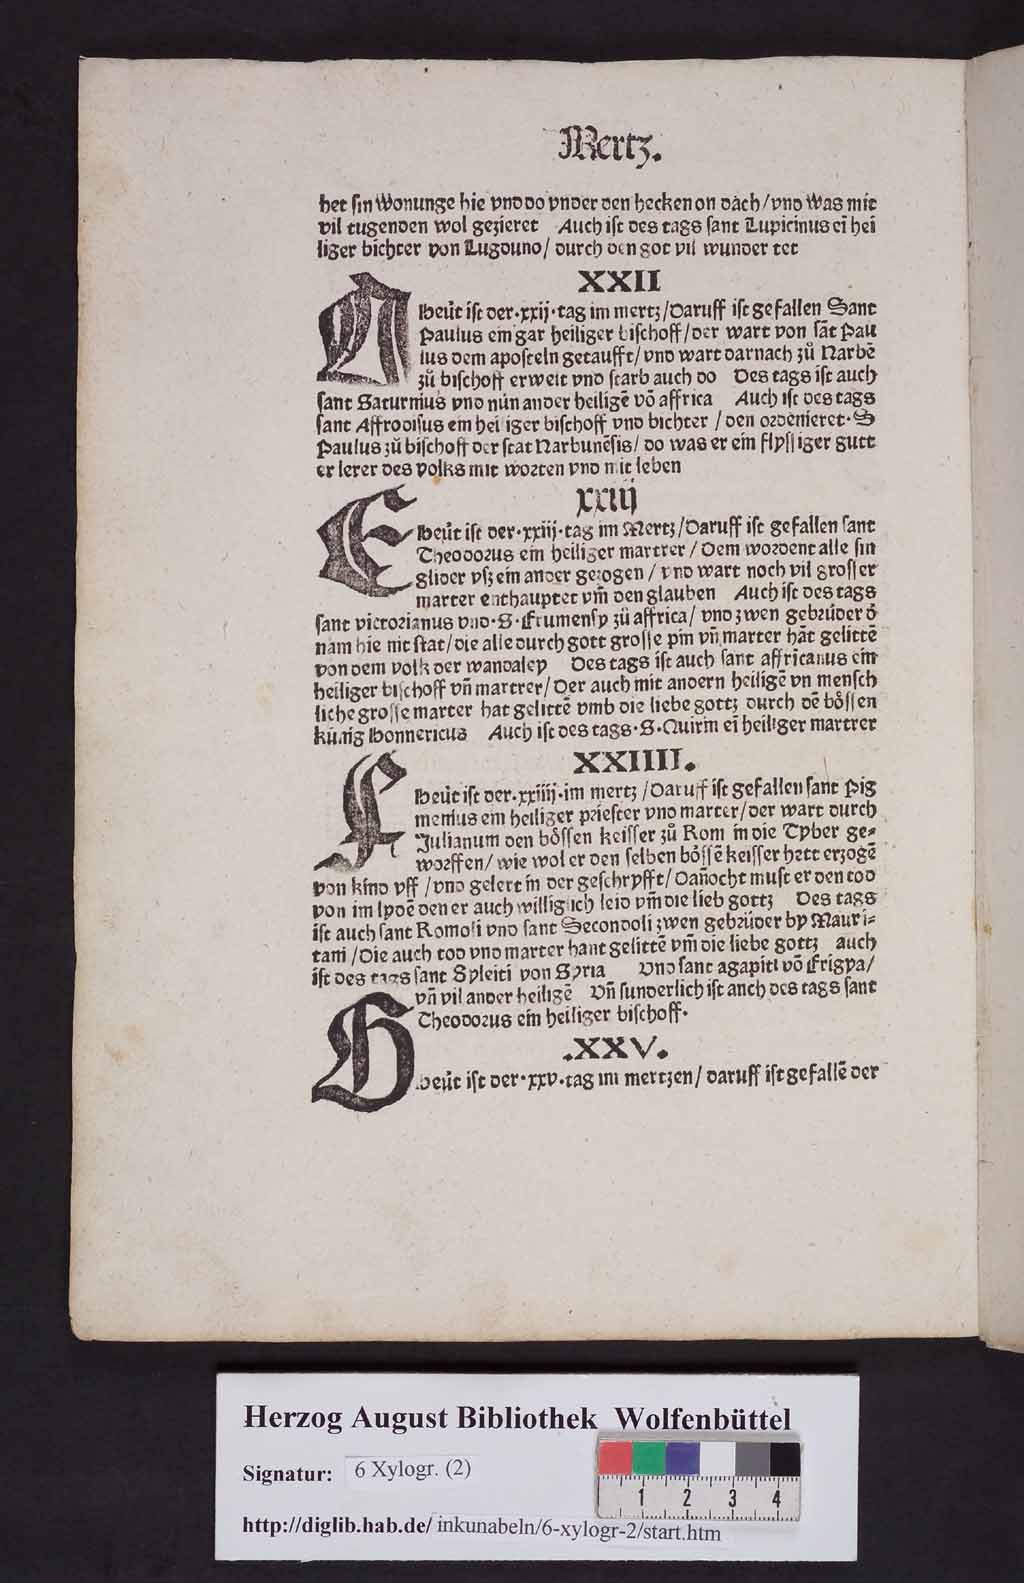 Mertz.
het sin Wonunge hie vnd do vnder den hecken on dach/vnd Was mit
vil tugenden wol gezieret Auch ist des tags sant Lupicinus ei hei
liger bichter von Lugduno/ durch den got vil wunder tet
XXII
A Heút ist der·xxij·tag im mertz/Daruff ist gefallen Sant
Paulus ein gar heiliger bischoff/der wart von sāt Pau
lus dem aposteln getaufft/vnd wart darnach zů Narbē
zů bischoff erwelt vnd starb auch do Des tags ist auch
sant Saturnius vnd nún ander heiligē vō affrica Auch ist des tags
sant Affrodisus ein heiliger bischoff vnd bichter / den ordenieret·S
Paulus zů bischoff der stat Narbunēsis/ do was er ein flyssiger gutt
er lerer des volks mit worten vnd mit leben
xxiij
E Heút ist der·xxiij·tag im Mertz/Daruff ist gefallen sant
Theodorus ein heiliger martrer / Dem wordent alle sin
glider vsz ein ander gezogen / vnd wart noch vil grosser
marter enthauptet vm̄ den glauben Auch ist des tags
sant victorianus vnd·S·Frumensy zů affrica/ vnd zwen gebrúder d̄
nam hie nit stat/die alle durch gott grosse pin vn̄ marter hāt gelittē
von dem volk der wandaley Des tags ist auch sant affricanus ein
heiliger bischoff vn̄ martrer/Der auch mit andern heiligē vn mensch
liche grosse marter hat gelittē vmb die liebe gottz durch dē bőssen
kúnig Honnericus Auch ist des tags·S·Quirin ei heiliger martrer
XXIIII.
F Heút ist der·xxiiij·im mertz /Daruff ist gefallen sant Pig
menius ein heiliger priester vnd marter/der wart durch
Julianum den bőssen keisser zů Rom in die Tyber ge⸗
worffen/ wie wol er den selben bőssē keisser hett erzogē
von kind vff /vnd gelert in der geschrypfft/Dan̄ocht must er den tod
von im lydē den er auch williglich leid vm̄ die lieb gottz Des tags
ist auch sant Romoli vnd sant Secondoli zwen gebrúder by Mauri⸗
tani /Die auch tod vnd marter hant gelittē vm̄ die liebe gottz auch
ist des tags sant Spleiti von Syria Vnd sant agapiti vō Frigya/
vn̄ vil ander heiligē Vn̄ sunderlich ist anch des tags sant
Theodorus ein heiliger bischoff·
.XXV.
G Heút ist der·xxv·tag im mertzen/ daruff ist gefallē der
Herzog August Bibliothek Wolfenbüttel
Signatur: 6 Xylogr. (2)
1 2 3 4
http://diglib.hab.de/ inkunabeln/6-xylogr-2/start.htm